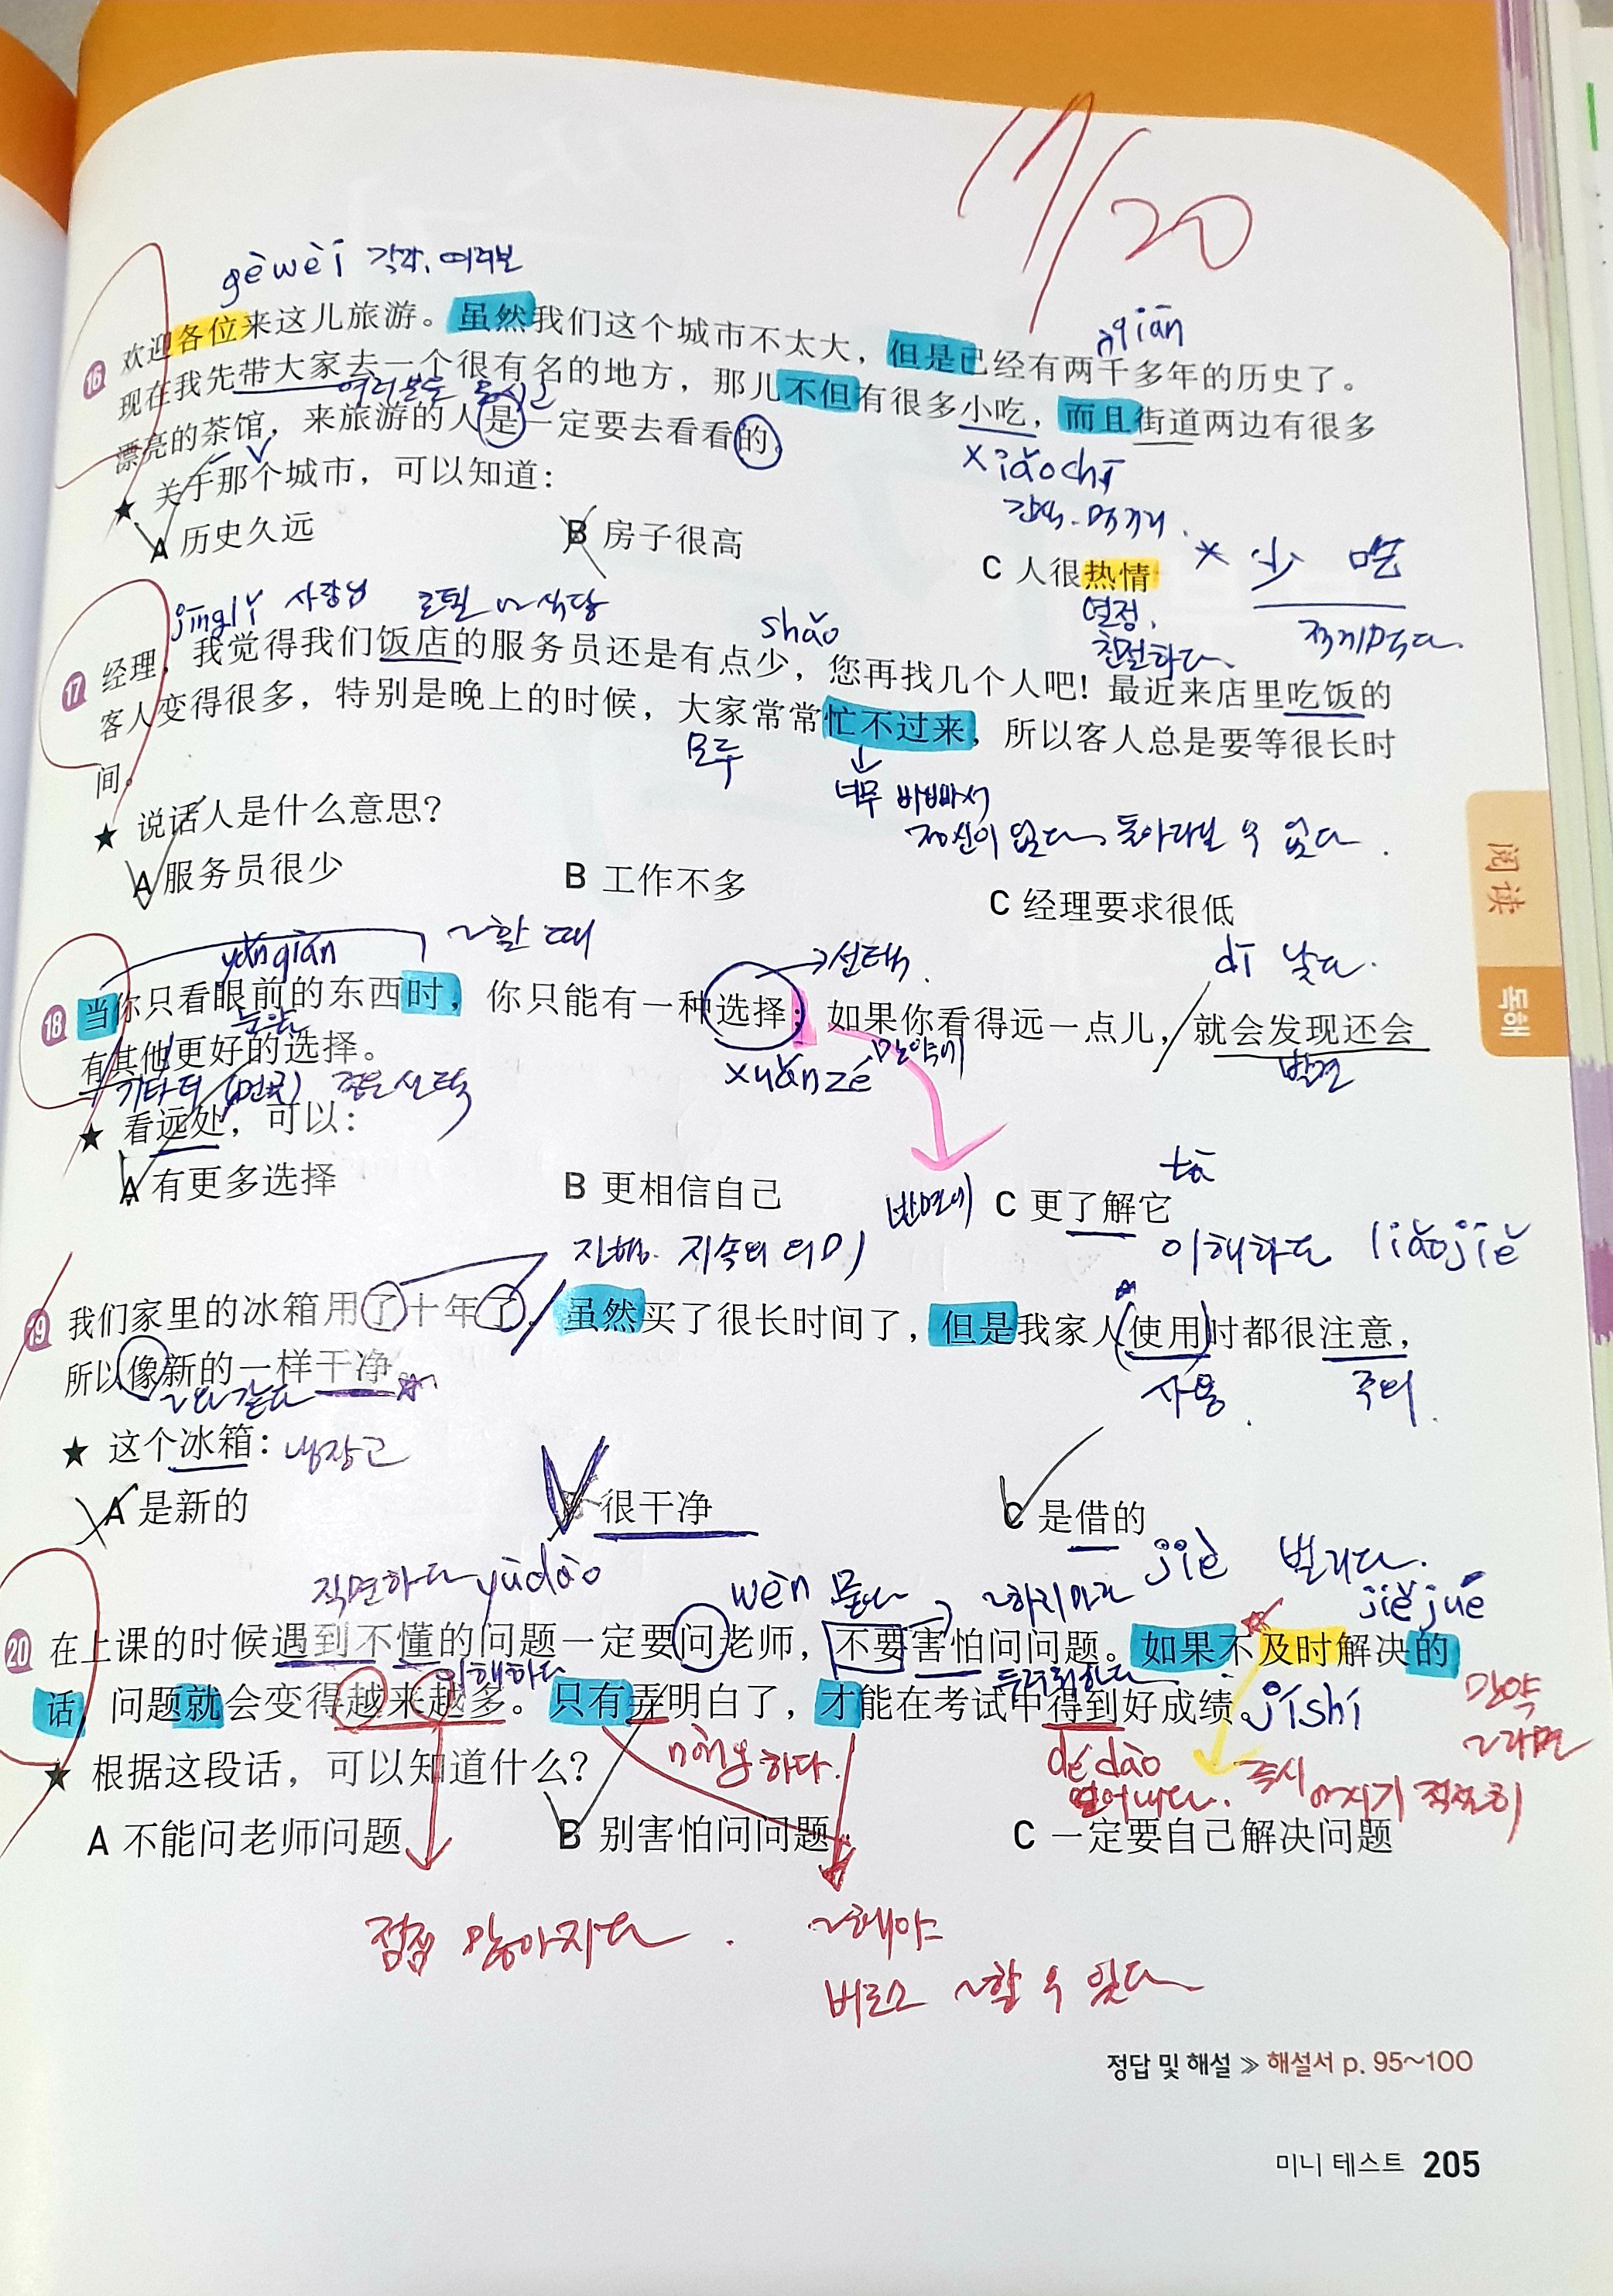 17/20
gèwèi 각각, 여러분
16 欢迎各位来这儿旅游。虽然我们这个城市不太大，但是已经有两千多年的历史了。
qiān
现在我先带大家去一个很有名的地方，那儿不但有很多小吃，而且街道两边有很多
여러분을 모시고
漂亮的茶馆，来旅游的人是一定要去看看的。
xiǎochī
★ 关于那个城市，可以知道：
A 历史久远
B 房子很高
C 人很热情
열정,
친절하다.
少 吃
적게먹다.
jīnglǐ 사장님
호텔 ~식당
shǎo
17 经理，我觉得我们饭店的服务员还是有点少，您再找几个人吧！最近来店里吃饭的
客人变得很多，特别是晚上的时候，大家常常忙不过来，所以客人总是要等很长时
모두
间。
너무 바빠서
정신이 없다. 돌아다볼 수 없다.
★ 说话人是什么意思？
A 服务员很少
B 工作不多
C 经理要求很低
阅读
독해
yǎnqián
~할 때
→선택.
dī 낮다.
18 当你只看眼前的东西时，你只能有一种选择；如果你看得远一点儿，就会发现还会
눈앞
xuǎnzé
만약에
발견
有其他更好的选择。
기타더 좋은선택
★ 看远处，可以：
A 有更多选择
B 更相信自己
반면에
C 更了解它
tā
이해하다 liǎojiě
진행. 지속의 의미
19 我们家里的冰箱用了十年了，虽然买了很长时间了，但是我家人使用时都很注意，
사용.
주의.
所以像新的一样干净。
~와 같다
★ 这个冰箱：냉장고
A 是新的
B 很干净
C 是借的
jiè 빌리다.
직면하다 yùdào
wèn 묻다
~하지마라
jiějué
20 在上课的时候遇到不懂的问题一定要问老师，不要害怕问问题。如果不及时解决的
이해하다
두려워하다
jíshí
만약
~라면
话，问题就会变得越来越多。只有弄明白了，才能在考试中得到好成绩。
하다.
dédào
얻어내다.
즉시
★ 根据这段话，可以知道什么？
A 不能问老师问题
B 别害怕问问题
C 一定要自己解决问题
점점 많아지다.
~해야
비로소 ~할 수 있다
정답 및 해설 ≫ 해설서 p. 95~100
미니 테스트 205